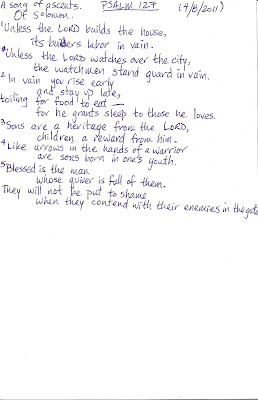 A song of ascents. PSALM 127 (4/8/2011)
Of Solomon.
1 Unless the LORD builds the house,
its builders labor in vain.
Unless the LORD watches over the city,
the watchmen stand guard in vain.
2 In vain you rise early
and stay up late,
toiling for food to eat —
for he grants sleep to those he loves.
3 Sons are a heritage from the LORD,
children a reward from him.
4 Like arrows in the hands of a warrior
are sons born in one's youth.
5 Blessed is the man
whose quiver is full of them.
They will not be put to shame
when they contend with their enemies in the gate